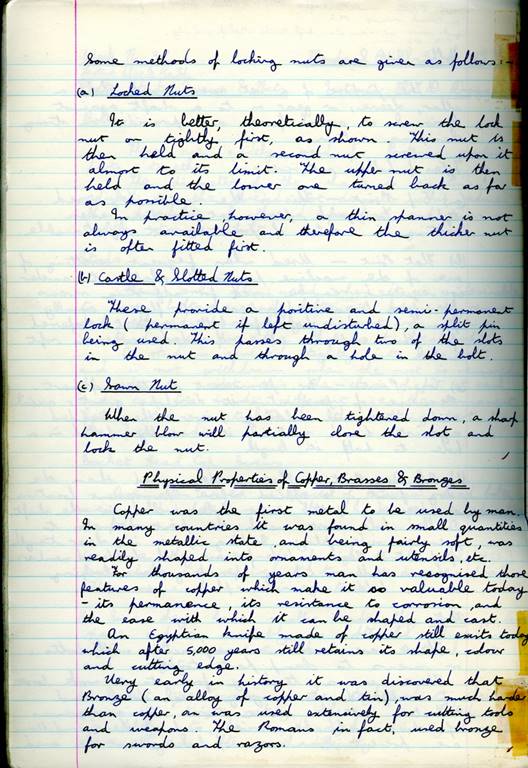 Some methods of locking nuts are given as follows:-
(a) Locked Nuts
It is better, theoretically, to screw the lock
nut on tightly first, as shown. This nut is
then held and a second nut screwed upon it
almost to its limit. The upper nut is then
held and the lower one turned back as far
as possible.
In practice, however, a thin spanner is not
always available and therefore the thicker nut
is often fitted first.
(b) Castle & Slotted Nuts
These provide a positive and semi-permanent
lock (permanent if left undisturbed), a split pin
being used. This passes through two of the slots
in the nut and through a hole in the bolt.
(c) Sawn Nut
When the nut has been tightened down, a sharp
hammer blow will partially close the slot and
lock the nut.
Physical Properties of Copper, Brasses & Bronzes
Copper was the first metal to be used by man.
In many countries it was found in small quantities
in the metallic state, and being fairly soft, was
readily shaped into ornaments and utensils, etc.
For thousands of years man has recognised those
features of copper which make it so valuable today
- its permanence, its resistance to corrosion, and
the ease with which it can be shaped and cast.
An Egyptian knife made of copper still exits today
which after 5,000 years still retains its shape, colour
and cutting edge.
Very early in history it was discovered that
Bronze (an alloy of copper and tin), was much harder
than copper, an was used extensively for cutting tools
and weapons. The Romans in fact, used bronze
for swords and razors.